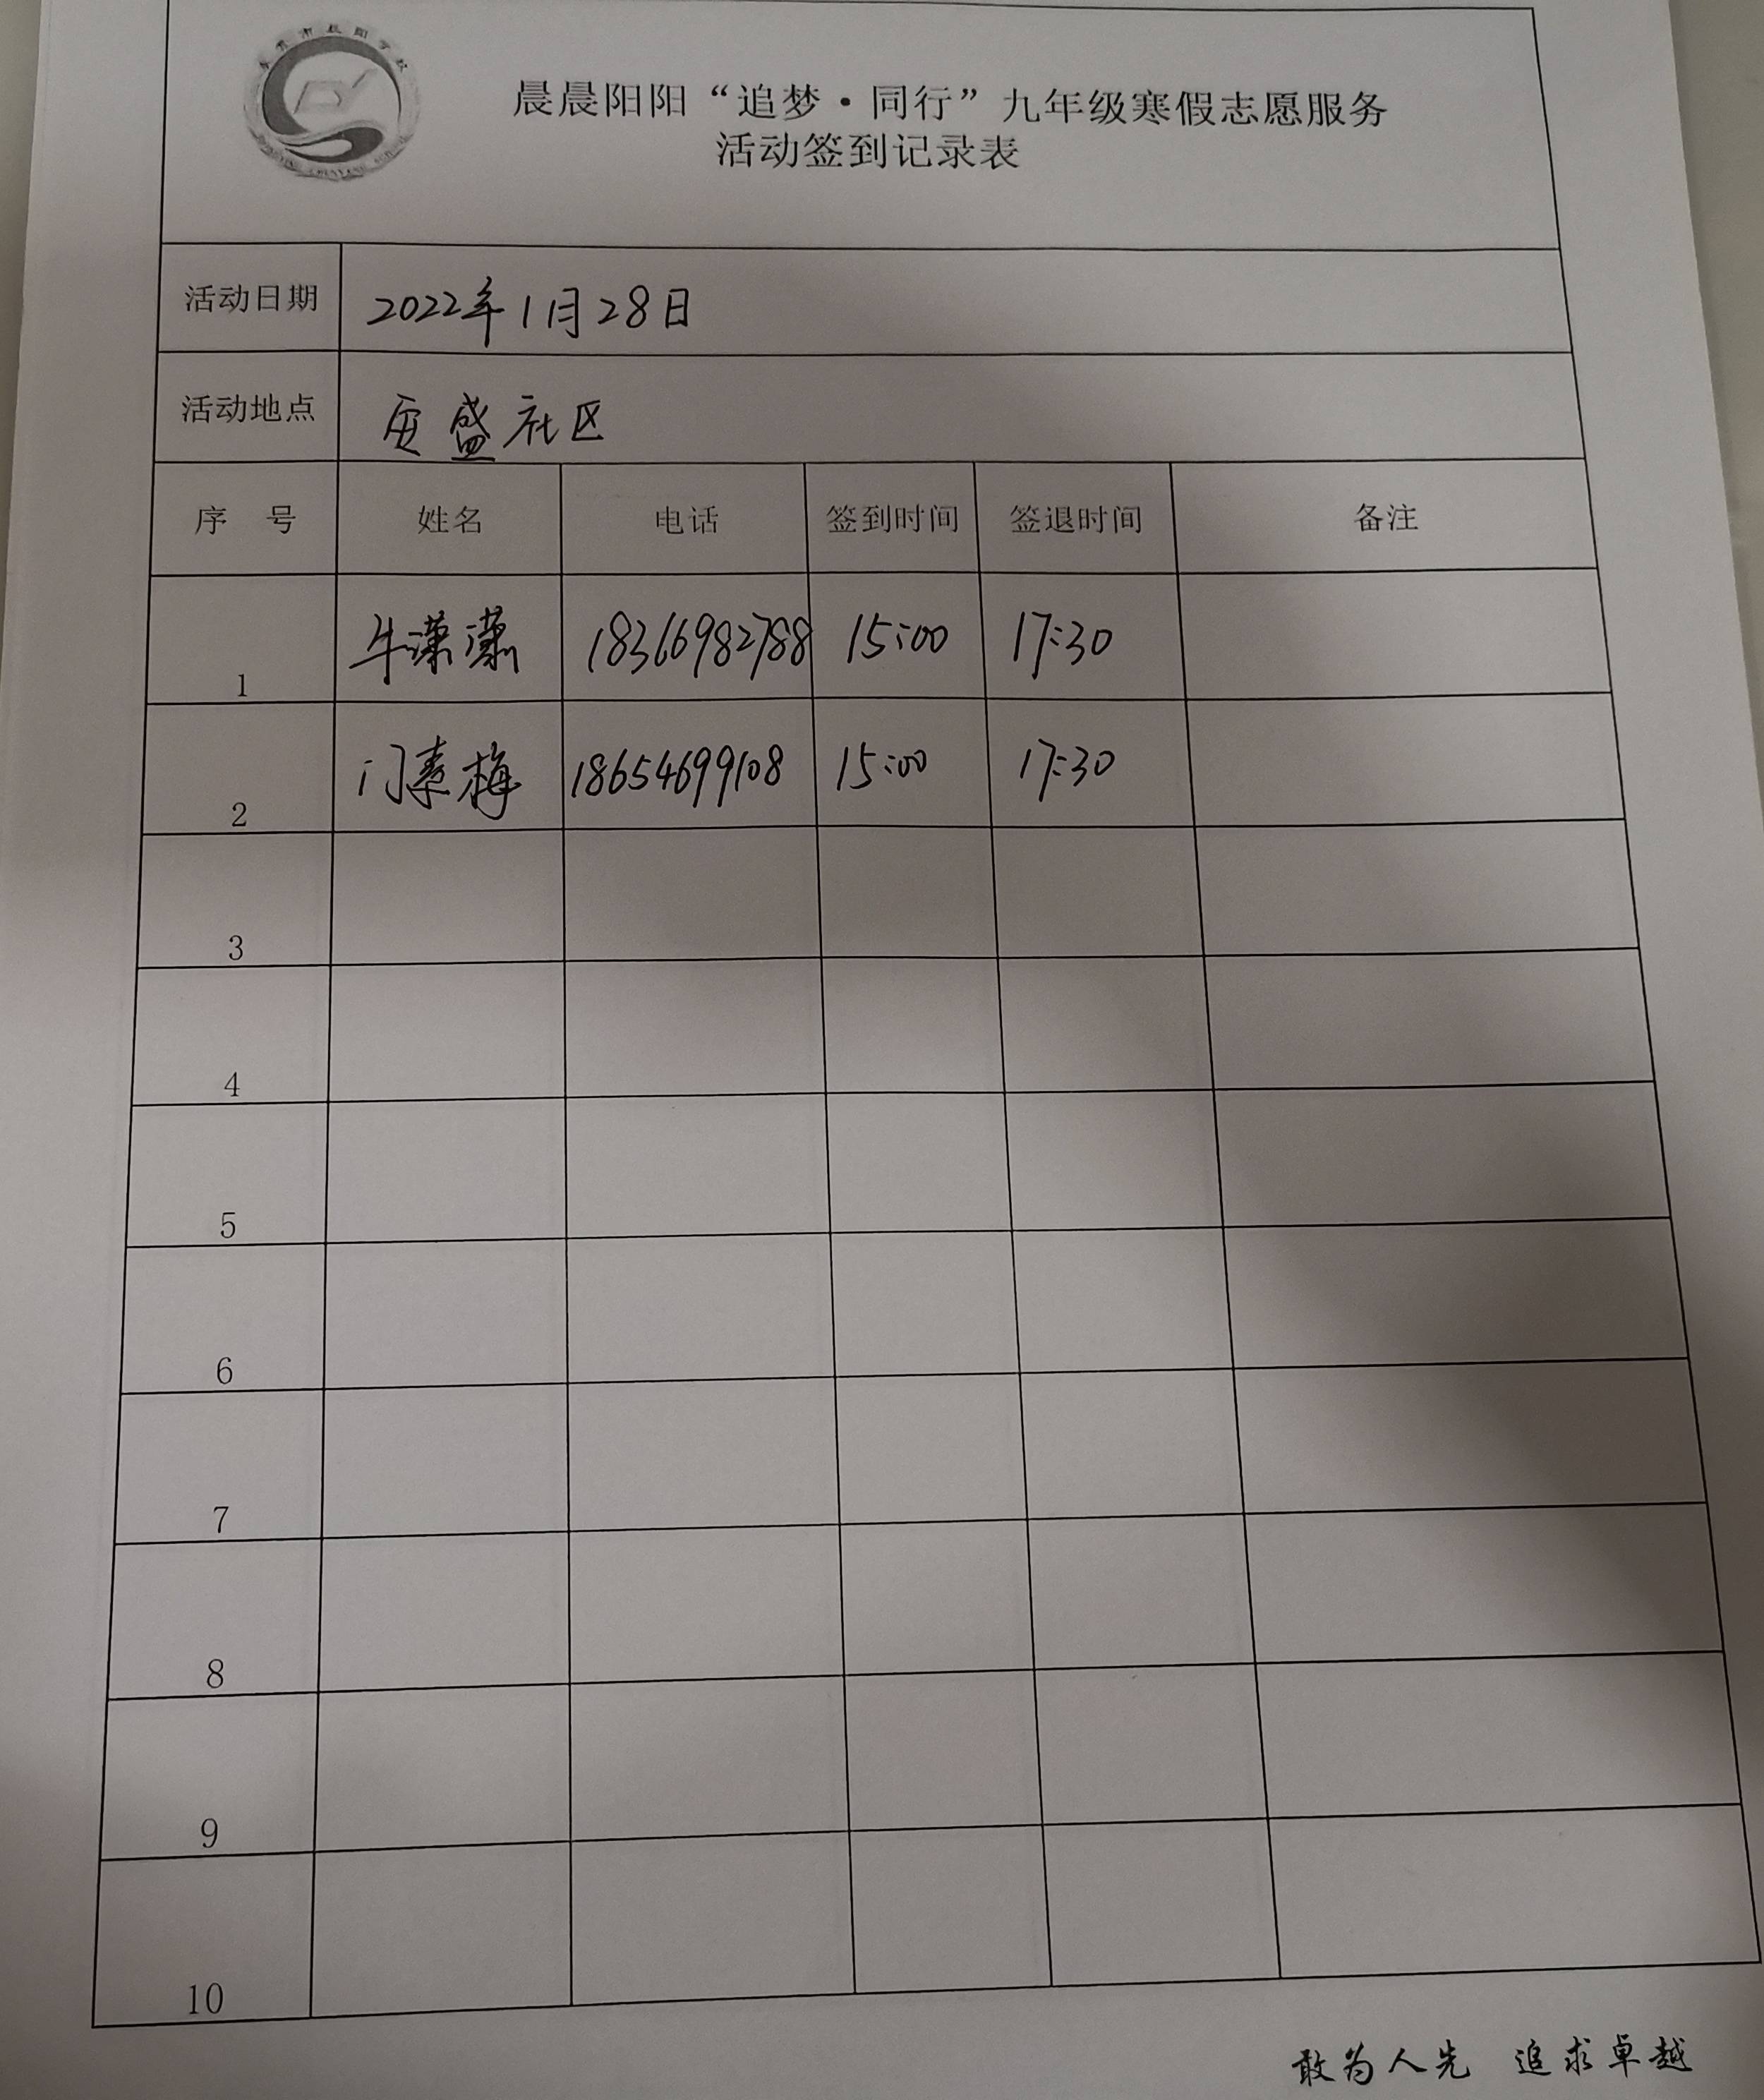 晨晨阳阳“追梦·同行”九年级寒假志愿服务
活动签到记录表
活动日期 2022年1月28日
活动地点 安盛社区
序 号 姓名 电话 签到时间 签退时间 备注
1 牛潇潇 18366982788 15:00 17:30
2 门素梅 18654699108 15:00 17:30
3
4
5
6
7
8
9
10
敢为人先 追求卓越